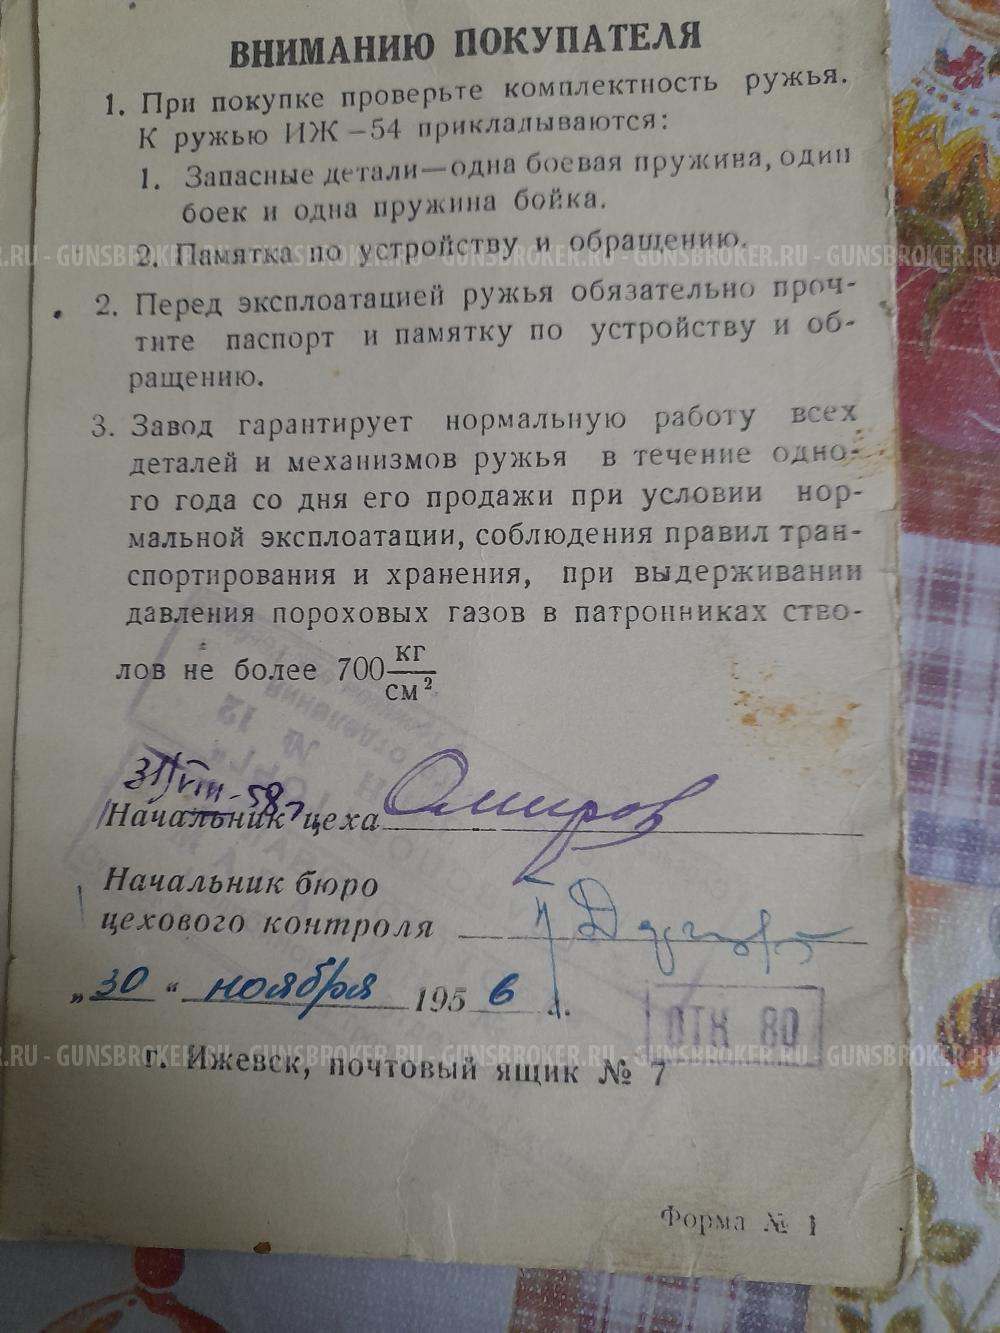 ВНИМАНИЮ ПОКУПАТЕЛЯ
1. При покупке проверьте комплектность ружья.
К ружью ИЖ—54 прикладываются:
1. Запасные детали—одна боевая пружина, один
боек и одна пружина бойка.
2. Памятка по устройству и обращению.
.RU - GUNSBROKER.RU - GUNSBROKER.RU - GUNSBROKER.RU - GUNSBROKER.RU - GUNSBROKER.RU
2. Перед эксплоатацией ружья обязательно проч-
тите паспорт и памятку по устройству и об-
ращению.
3. Завод гарантирует нормальную работу всех
деталей и механизмов ружья в течение одно-
го года со дня его продажи при условии нор-
мальной эксплоатации, соблюдения правил тран-
спортирования и хранения, при выдерживании
давления пороховых газов в патронниках ство-
лов не более 700 кг/см²
Начальник цеха
Начальник бюро
цехового контроля
„30“ ноября 1956 г.
ОТК 80
г. Ижевск, почтовый ящик № 7
.RU - GUNSBROKER.RU - GUNSBROKER.RU - GUNSBROKER.RU - GUNSBROKER.RU - GUNSBROKER.RU
Форма № 1